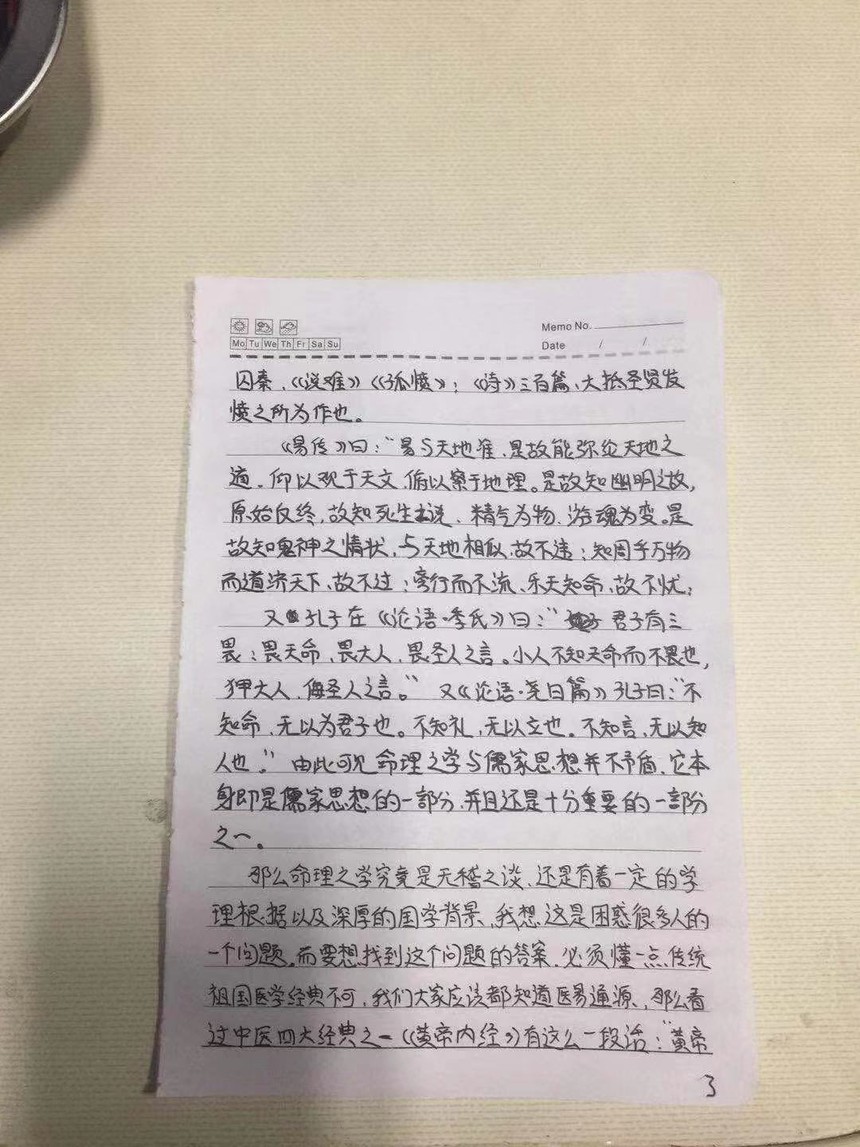 Memo No.
Mo Tu We Th Fr Sa Su
Date / /
囚秦、《说难》《孤愤》；《诗》三百篇、大抵圣贤发
愤之所为作也。
《易传》曰：“易与天地准、是故能弥纶天地之
道、仰以观于天文、俯以察于地理。是故知幽明之故，
原始反终，故知死生之说、精气为物、游魂为变。是
故知鬼神之情状、与天地相似、故不违；知周乎万物
而道济天下、故不过；旁行而不流、乐天知命、故不忧；
又孔子在《论语·季氏》曰：“君子有三
畏：畏天命，畏大人，畏圣人之言。小人不知天命而不畏也，
狎大人、侮圣人之言。” 又《论语·尧曰篇》孔子曰：“不
知命，无以为君子也。不知礼，无以立也。不知言，无以知
人也。” 由此可见命理之学与儒家思想并不矛盾、它本
身即是儒家思想的一部分、并且还是十分重要的一部份
之一。
那么命理之学究竟是无稽之谈、还是有着一定的学
理根据以及深厚的国学背景、我想这是困惑很多人的
一个问题。而要想找到这个问题的答案、必须懂一点传统
祖国医学经典不可，我们大家应该都知道医易通源、那么看
过中医四大经典之一《黄帝内经》有这么一段话：“黄帝
3